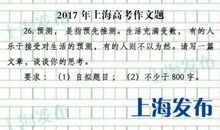 2017年上海高考作文题
26.预测，是指预先推测。生活充满变数，有的人
乐于接受对生活的预测，有的人则不以为然。请写一篇
文章，谈谈你的思考。
要求：（1）自拟题目；（2）不少于800字。
上海发布